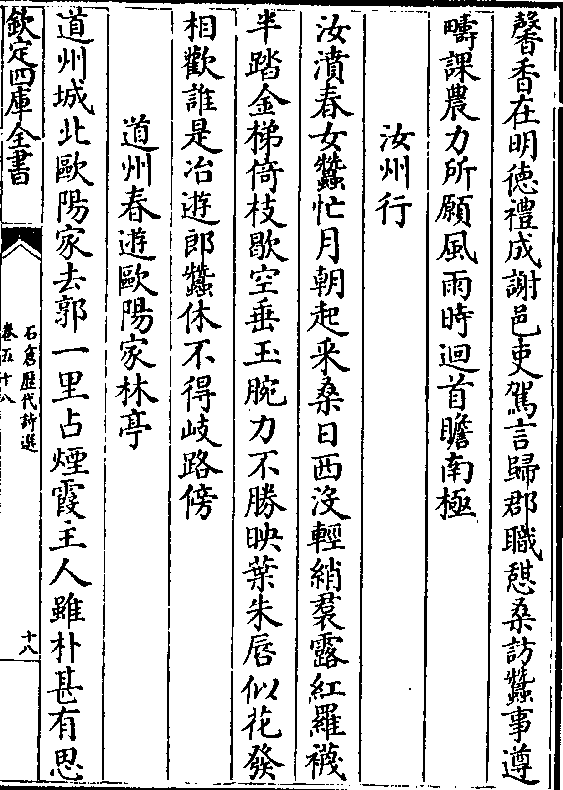 馨香在明德禮成謝邑吏駕言歸郡職憇桑訪蠶事遵
疇課農力所願風雨時迴首瞻南極
汝州行
汝濆春女蠶忙月朝起采桑日西沒輕綃裠露紅羅襪
半踏金梯倚枝歇空垂玉腕力不勝映葉朱唇似花發
相歡誰是冶遊郎蠶休不得岐路傍
道州春遊歐陽家林亭
道州城北歐陽家去郭一里占煙霞主人雖朴甚有思
欽定四庫全書
石倉歷代詩選
卷五十八
十八